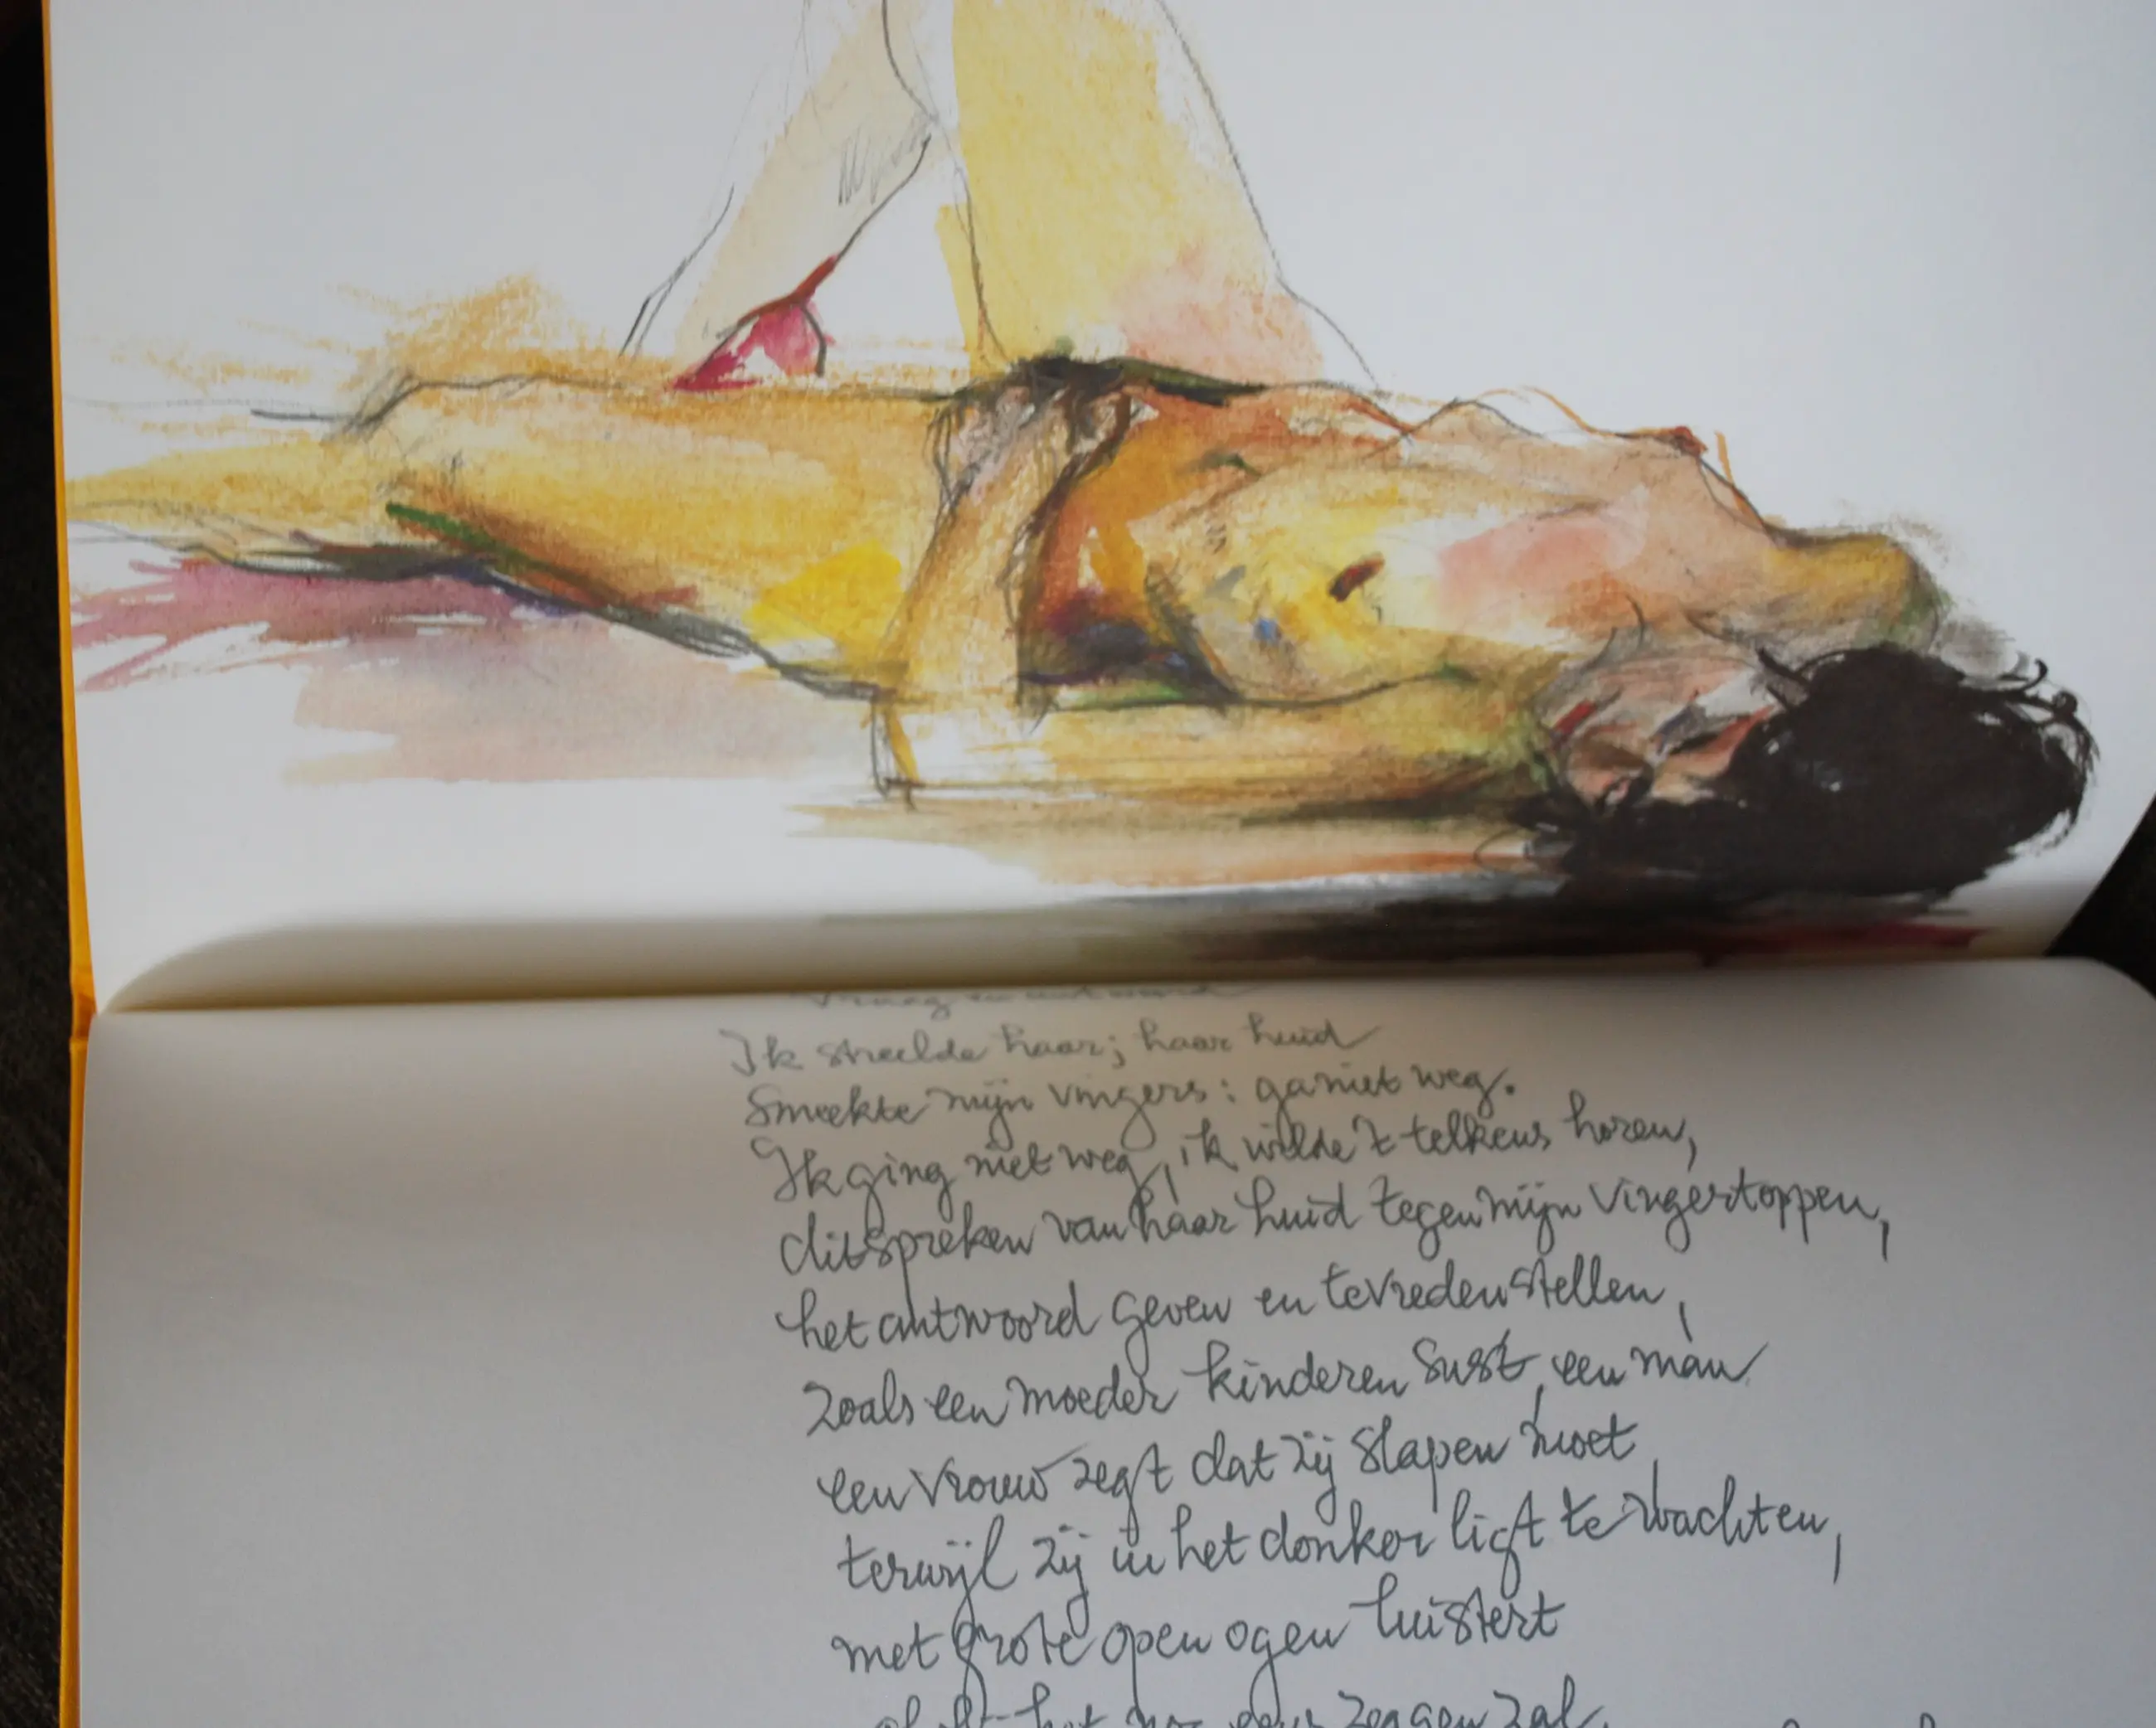 Vraag en antwoord
Ik streelde haar; haar huid
Smeekte mijn vingers: ga niet weg.
Ik ging niet weg, ik wilde 't telkens horen,
dit spreken van haar huid tegen mijn vingertoppen,
het antwoord geven en tevreden stellen,
zoals een moeder kinderen sust, een man
een vrouw zegt dat zij slapen moet
terwijl zij in het donker ligt te wachten,
met grote open ogen luistert
of hij het nog eens zeggen zal.